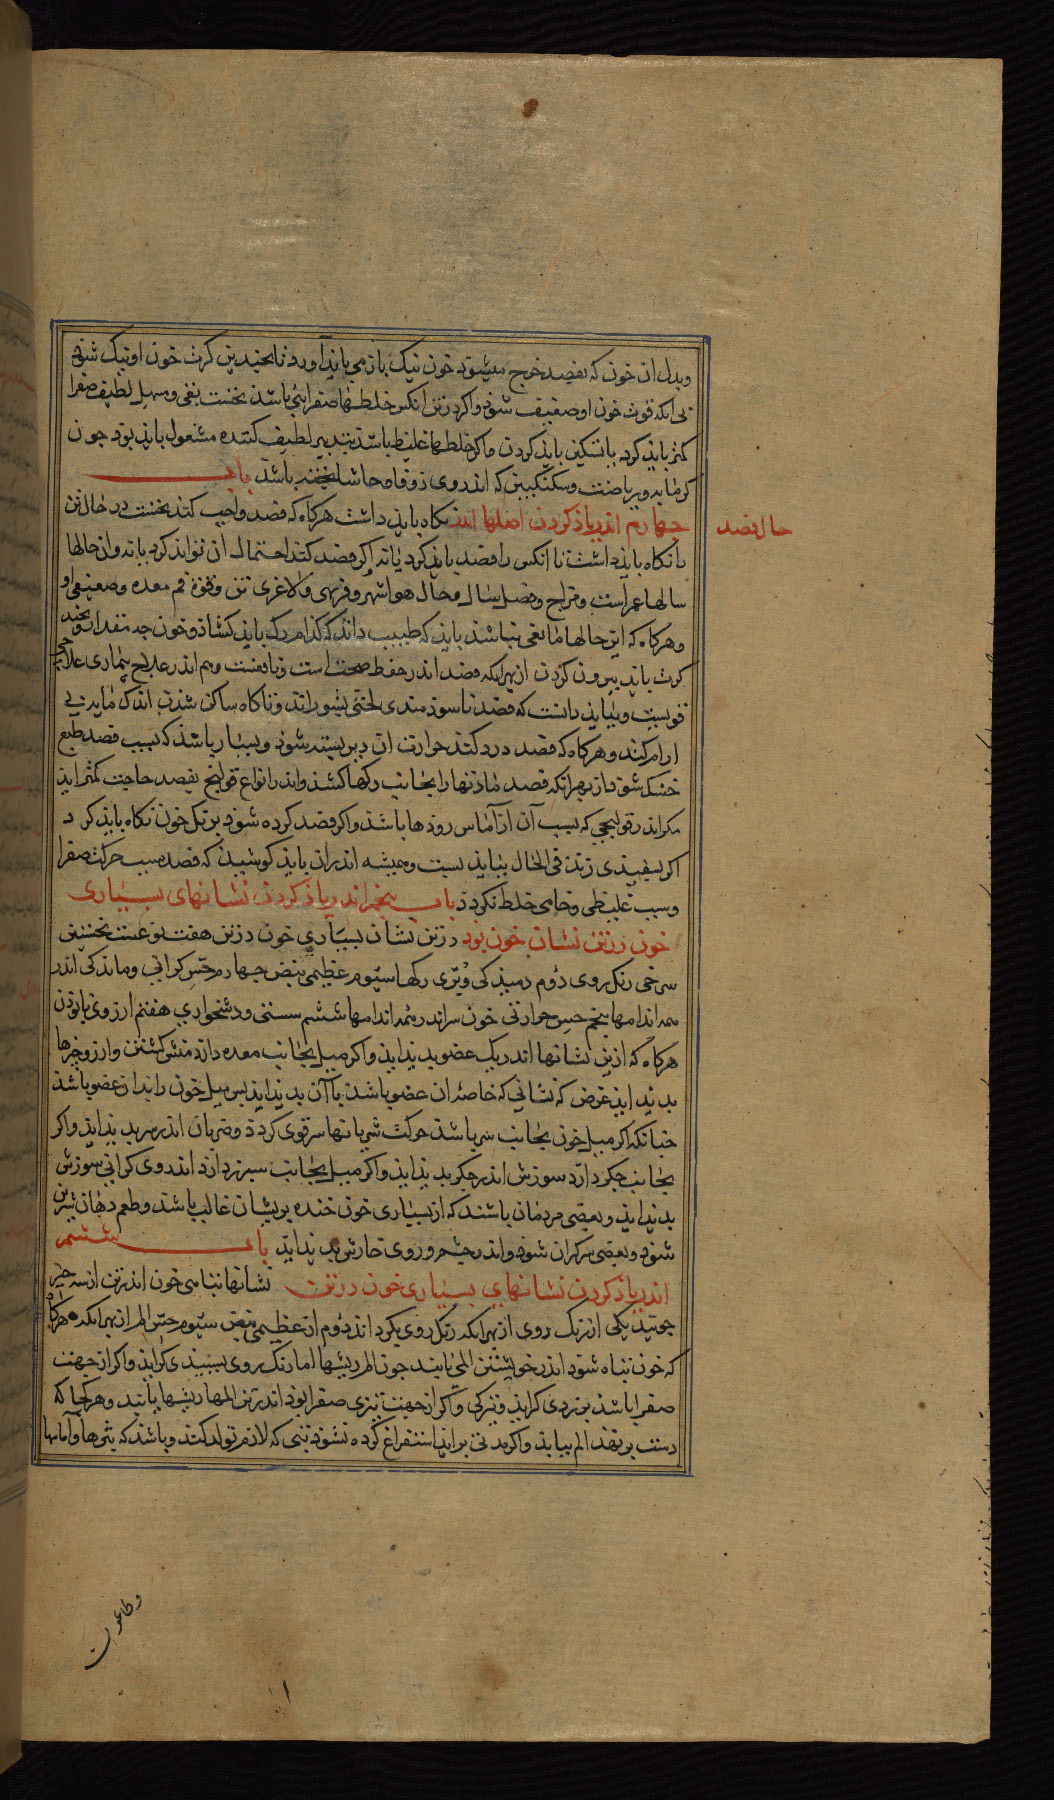 وبدل ان خون که بفصد خرج میشود خون نیک باز می باید آورد تا بچندین کرت خون او نیک شود
بی انکه قوت خون او ضعیف شود واکر در تن انکس خلطها صفرایی باشد نخست بقی ومسهل لطیف صفرا
کمتر باید کرد یا تسکین باید کردن واکر خلطها غلیظ باشد بتدبیر لطیف کننده مشغول باید بود چون
کرمابه وریاضت وسکنکبین که اندروی زوفا وحاشا پخته باشد باب
چهارم اندر یاذ کردن اصلها اندر نکاه باید داشت هرکاه که فصد واجب کند نخست در حال تن
حال فصد
را نکاه باید داشت تا انکس را فصد باید کرد یا نه واکر فصد کند احتمال ان تواند کرد یا نه وان حالها
سالها عمر است ومزاج وفصل سال وحال هوا شهر وفربهی ولاغری تن وقوة فم معده وضعیفی او
وهرکاه که این حالها مانعی نباشد باید که طبیب داند که کدام رک باید کشاد وخون چه مقدار وبچند
کرت باید بیرون کردن از بهر انکه فصد اندر حفظ صحت است ونا یفتست وهم اندر علاج بیماری علاجی
قویست وبباید دانست که فصد ناسودمندی لختی بشوراند وناکاه ساکن شدن اندک مایه تبی
ارام کند وهرکاه که فصد درد کند حرارت ان دیر بسته شود وبسیار باشد که بسبب فصد طبع
خشک شود از بهر انکه فصد مادتها را بجانب رکها کشد واندر انواع قولنج بفصد حاجت کمتر اید
مکر اندر قولنجی که بسبب آن از آماس رودها باشد واکر فصد کرده شود برنک خون نکاه باید کرد
اکر بسفیدی زند فی الحال بباید بست وهمیشه اندران باید کوشید که فصد سبب حرکت صفرا
وسبب غلیظی وخامی خلط نکردد باب پنجم اندر یاذ کردن نشانهای بسیاری
خون در تن نشان خون بود در تن نشان بسیاری خون در تن هفت نوعست نخستین
سرخی رنک روی دوم دمیدکی وپری رکها سیوم عظیمی نبض چهارم حس کرانی وماندکی اندر
همه اندامها پنجم حس حرارتی خون سر اندر همه اندامها ششم سستی ودشخواری هفتم ارزوی یانودن
هرکاه که ازین نشانها اندر یک عضو پدید اید واکر میل بجانب معده دارد منش کشتن وارزو چیزها
پدید اید غرض که نشانی که خاصه ان عضو باشد با آن پدید اید پس میل خون را بدان عضو باشد
چنانکه اکر میل خون بجانب سر باشد حرکت شریانها سر قوی کردد وضربان اندر سر پدید اید واکر
بجانب جکر دارد سوزش اندر جکر پدید اید واکر میل بجانب سپرز دارد اندروی کرانی سوزش
پدید اید وبعضی مردمان باشند که از بسیاری خون خنده بریشان غالب باشد وطعم دهان شیرین
شود وبعضی سرکران شود واندر چشم وروی خارش پدید اید باب ششم
اندر یاذ کردن نشانهای بسیاری خون در تن نشانها تباهی خون اندر تن از سه چیز
جویند یکی از رنک روی از بهر انکه رنک روی بکرداند دوم از عظیمی نبض سیوم حس الم از بهر انکه هرکاه
که خون تباه شود اندر خویشتن المی یابند چون الم ریشها اما رنک روی بسپیدی کراید واکر از جهت
صفرا باشد بزردی کراید وتیرکی واکر از جهت تیزی صفرا بود اندر تن المها ریشها یابند وهر کجا که
دست بر نهند الم بیابد واکر مدتی براید استفراغ کرده نشود تبی که لازم تولد کند وباشد که بثرها وآماسها
وطاعون
ا